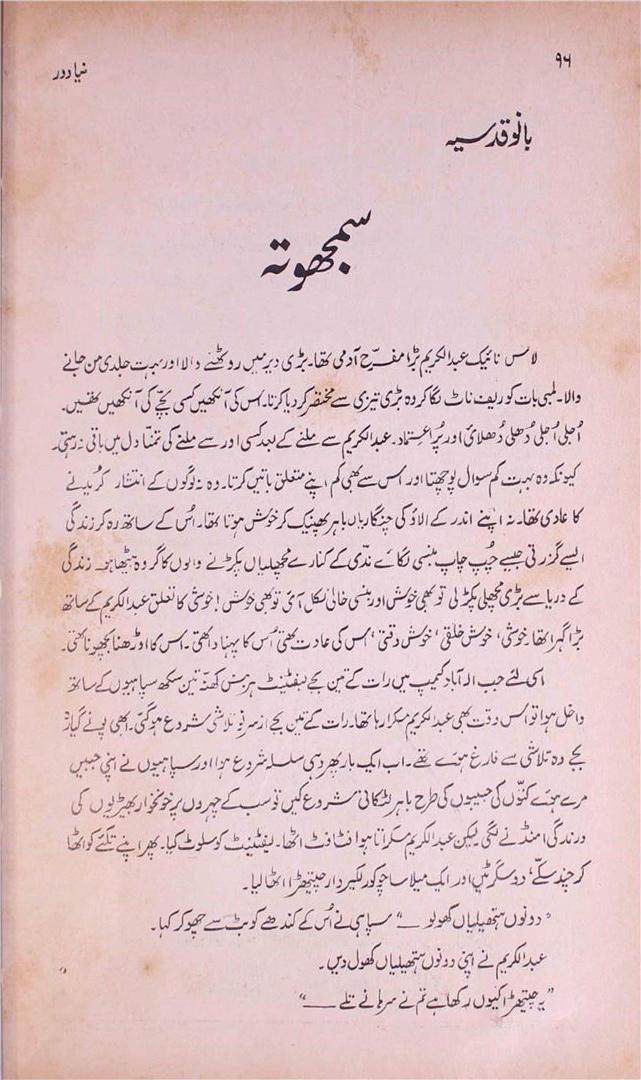 ۹۶
نیا دور
بانو قدسیہ
سمجھوتہ
لانس نائیک عبدالکریم بڑا مفرّح آدمی تھا۔ بڑی دیر میں روٹھنے والا اور بہت جلدی من جانے
والا۔ لمبی بات کو ریف ناٹ لگا کر وہ بڑی تیزی سے مختصر کر دیا کرتا۔ اس کی آنکھیں کسی بچّے کی آنکھیں تھیں۔
اُجلی اُجلی دُھلی دُھلائی اور پُر اعتماد۔ عبدالکریم سے ملنے کے بعد کسی اور سے ملنے کی تمنّا دل میں باقی نہ رہتی۔
کیونکہ وہ بہت کم سوال پوچھتا اور اس سے بھی کم اپنے متعلق باتیں کرتا۔ وہ نہ لوگوں کے انتشار کُریدنے
کا عادی تھا۔ نہ اپنے اندر کے الاؤ کی چنگاریاں باہر پھینک کر خوش ہوتا تھا۔ اُس کے ساتھ رہ کر زندگی
ایسے گزرتی جیسے چُپ چاپ بنسی لگائے ندّی کے کنارے مچھلیاں پکڑنے والوں کا گروہ بیٹھا ہو۔ زندگی
کے دریا سے بڑی مچھلی پکڑ لی تو بھی خوش اور بنسی خالی نکل آئی تو بھی خوش! خوشی کا تعلق عبدالکریم کے ساتھ
بڑا گہرا تھا۔ خوشی، خوش خلقی، خوش وقتی، اس کی عادت تھی اُس کا پہناوا تھی۔ اس کا اوڑھنا بچھونا تھی۔
اسی لئے جب الہ آباد کیمپ میں رات کے تین بجے لیفٹیننٹ ہربنس کھنّہ تین سکھ سپاہیوں کے ساتھ
داخل ہوا تو اس وقت بھی عبدالکریم مسکرا رہا تھا۔ رات کے تین بجے از سرِ نو تلاشی شروع ہو گئی۔ ابھی پونے گیارہ
بجے وہ تلاشی سے فارغ ہوئے تھے۔ اب ایک بار پھر وہی سلسلہ شروع ہوا اور سپاہیوں نے اپنی جیبیں
مرے ہوئے کتّوں کی جیبوں کی طرح باہر لٹکانی شروع کیں تو سب کے چہروں پر خونخوار بھیڑیوں کی
درندگی امنڈنے لگی۔ لیکن عبدالکریم مسکراتا ہوا فٹافٹ اٹھا۔ لیفٹیننٹ کو سلوٹ کیا۔ پھر اپنے تکئے کو اٹھا
کر چند سکّے، دو سگرٹیں اور ایک میلا سا چوکور لکیردار چیتھڑا اٹھا لیا۔
”دونوں ہتھیلیاں کھولو —“ سپاہی نے اُس کے کندھے کو بٹ سے چھو کر کہا۔
عبدالکریم نے اپنی دونوں ہتھیلیاں کھول دیں۔
”یہ چیتھڑا کیوں رکھا ہے تم نے سرہانے تلے —“